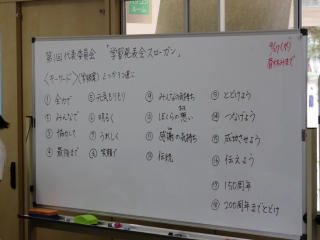 第1回代表委員会 「学習発表会スローガン」
〈キーワード〉(学級案) とっかりつ違に
① 全力で
② みんなで
③ 協力して
④ 最後まで
⑤ 元気もりもり
⑥ 明るく
⑦ うれしく
⑧ 笑顔で
⑨ みんなの気持ち
⑩ ぼくらの思い
⑪ 感謝の気持ち
⑫ 伝統
⑬ とどけよう
⑭ つなげよう
⑮ 成功させよう
⑯ 伝えよう
⑰ 150周年
⑱ 200周年までとどけ
9/17(水)
昼休みまで